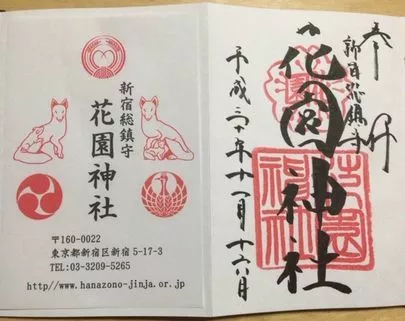 新宿総鎮守
花園神社
〒160-0022
東京都新宿区新宿5-17-3
TEL:03-3209-5265
http//www.hanazono-jinja.or.jp
奉拝
新宿総鎮守
花園神社
平成三十年十一月十六日